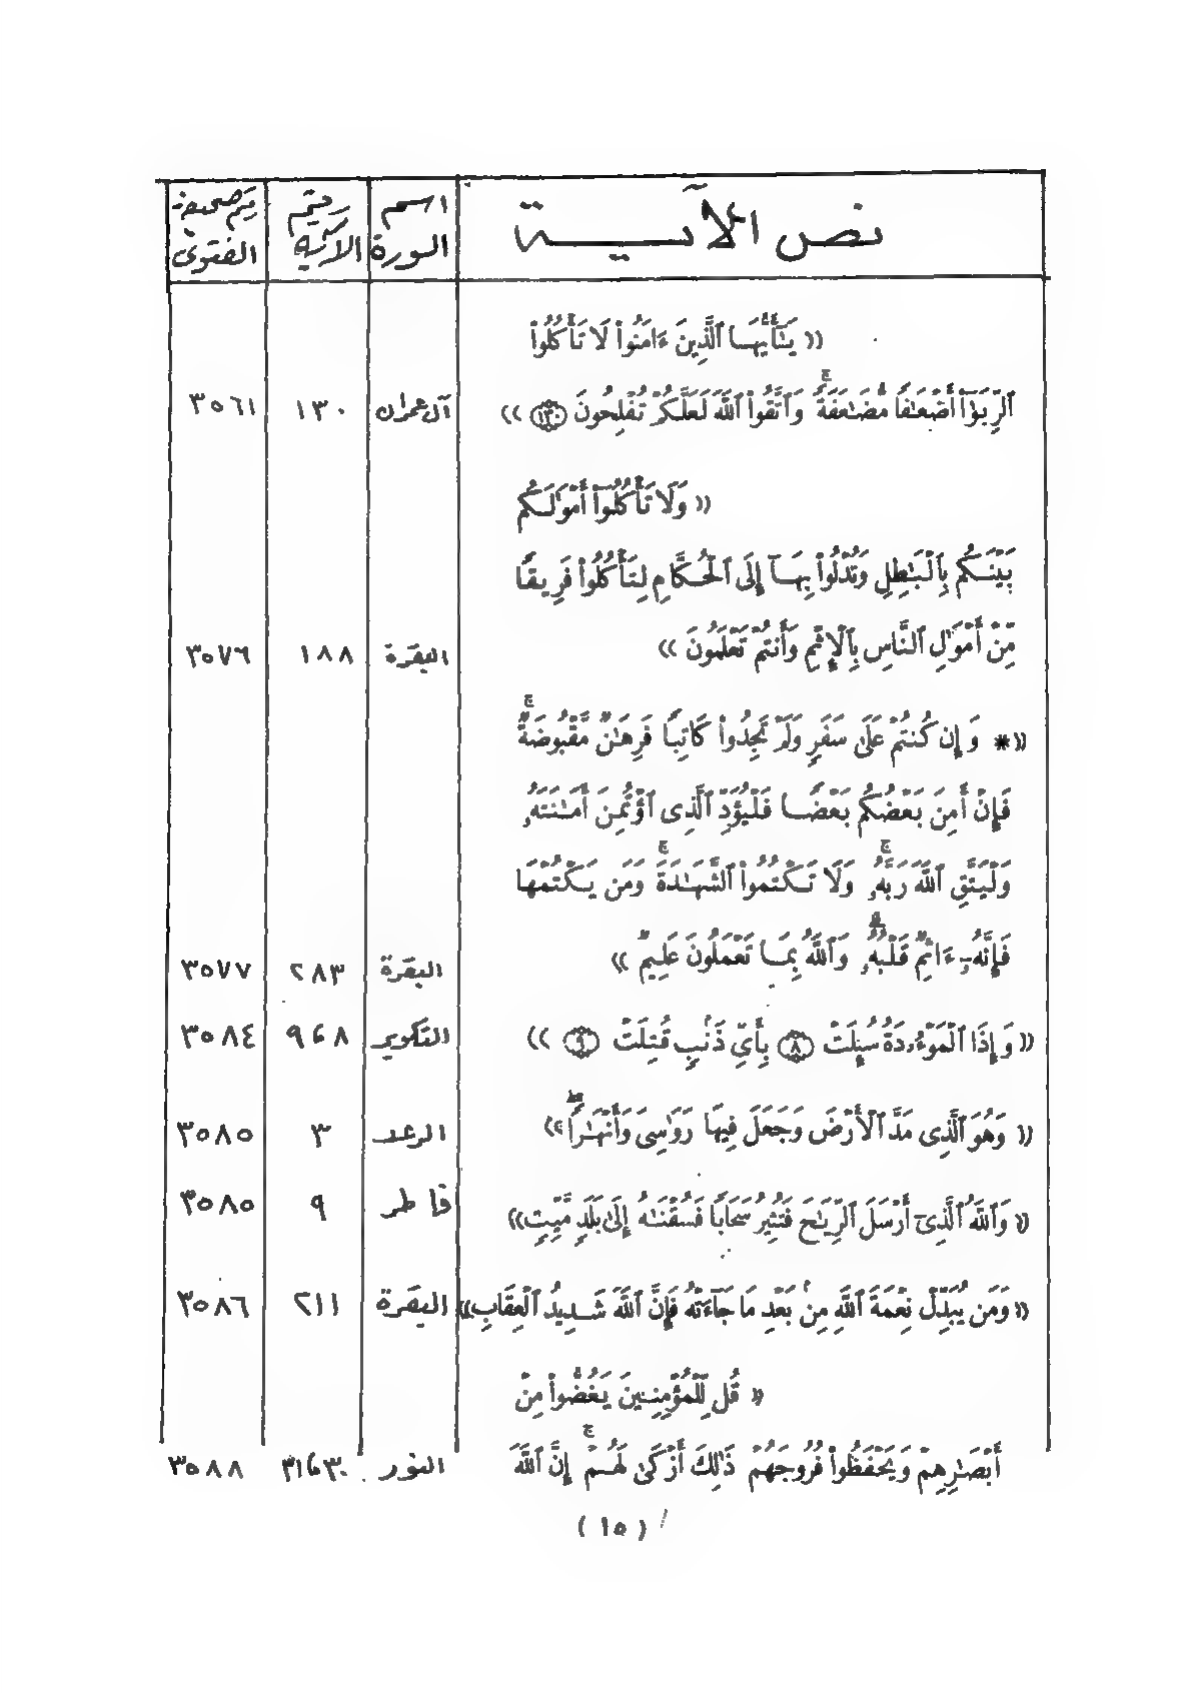 نص الآية اسم السورة رقم الآية رقم صحيفة الفتوى
« يَٰٓأَيُّهَا ٱلَّذِينَ ءَامَنُوا۟ لَا تَأْكُلُوا۟
ٱلرِّبَوٰٓا۟ أَضْعَٰفًا مُّضَٰعَفَةً ۖ وَٱتَّقُوا۟ ٱللَّهَ لَعَلَّكُمْ تُفْلِحُونَ ١٣٠ » آل عمران ١٣٠ ٣٥٦١
« وَلَا تَأْكُلُوٓا۟ أَمْوَٰلَكُم
بَيْنَكُم بِٱلْبَٰطِلِ وَتُدْلُوا۟ بِهَآ إِلَى ٱلْحُكَّامِ لِتَأْكُلُوا۟ فَرِيقًا
مِّنْ أَمْوَٰلِ ٱلنَّاسِ بِٱلْإِثْمِ وَأَنتُمْ تَعْلَمُونَ » البقرة ١٨٨ ٣٥٧٦
« * وَإِن كُنتُمْ عَلَىٰ سَفَرٍ وَلَمْ تَجِدُوا۟ كَاتِبًا فَرِهَٰنٌ مَّقْبُوضَةٌ ۖ
فَإِنْ أَمِنَ بَعْضُكُم بَعْضًا فَلْيُؤَدِّ ٱلَّذِى ٱؤْتُمِنَ أَمَٰنَتَهُۥ
وَلْيَتَّقِ ٱللَّهَ رَبَّهُۥ ۗ وَلَا تَكْتُمُوا۟ ٱلشَّهَٰدَةَ ۚ وَمَن يَكْتُمْهَا
فَإِنَّهُۥٓ ءَاثِمٌ قَلْبُهُۥ ۗ وَٱللَّهُ بِمَا تَعْمَلُونَ عَلِيمٌ » البقرة ٢٨٣ ٣٥٧٧
« وَإِذَا ٱلْمَوْءُۥدَةُ سُئِلَتْ ٨ بِأَىِّ ذَنۢبٍ قُتِلَتْ ٩ » التكوير ٨ ، ٩ ٣٥٨٤
« وَهُوَ ٱلَّذِى مَدَّ ٱلْأَرْضَ وَجَعَلَ فِيهَا رَوَٰسِىَ وَأَنْهَٰرًا ۖ » الرعد ٣ ٣٥٨٥
« وَٱللَّهُ ٱلَّذِىٓ أَرْسَلَ ٱلرِّيَٰحَ فَتُثِيرُ سَحَابًا فَسُقْنَٰهُ إِلَىٰ بَلَدٍ مَّيِّتٍ » فاطر ٩ ٣٥٨٥
« وَمَن يُبَدِّلْ نِعْمَةَ ٱللَّهِ مِنۢ بَعْدِ مَا جَآءَتْهُ فَإِنَّ ٱللَّهَ شَدِيدُ ٱلْعِقَابِ » البقرة ٢١١ ٣٥٨٦
« قُل لِّلْمُؤْمِنِينَ يَغُضُّوا۟ مِنْ
أَبْصَٰرِهِمْ وَيَحْفَظُوا۟ فُرُوجَهُمْ ۚ ذَٰلِكَ أَزْكَىٰ لَهُمْ ۗ إِنَّ ٱللَّهَ النور ٣٠ ، ٣١ ٣٥٨٨
( ١٥ )